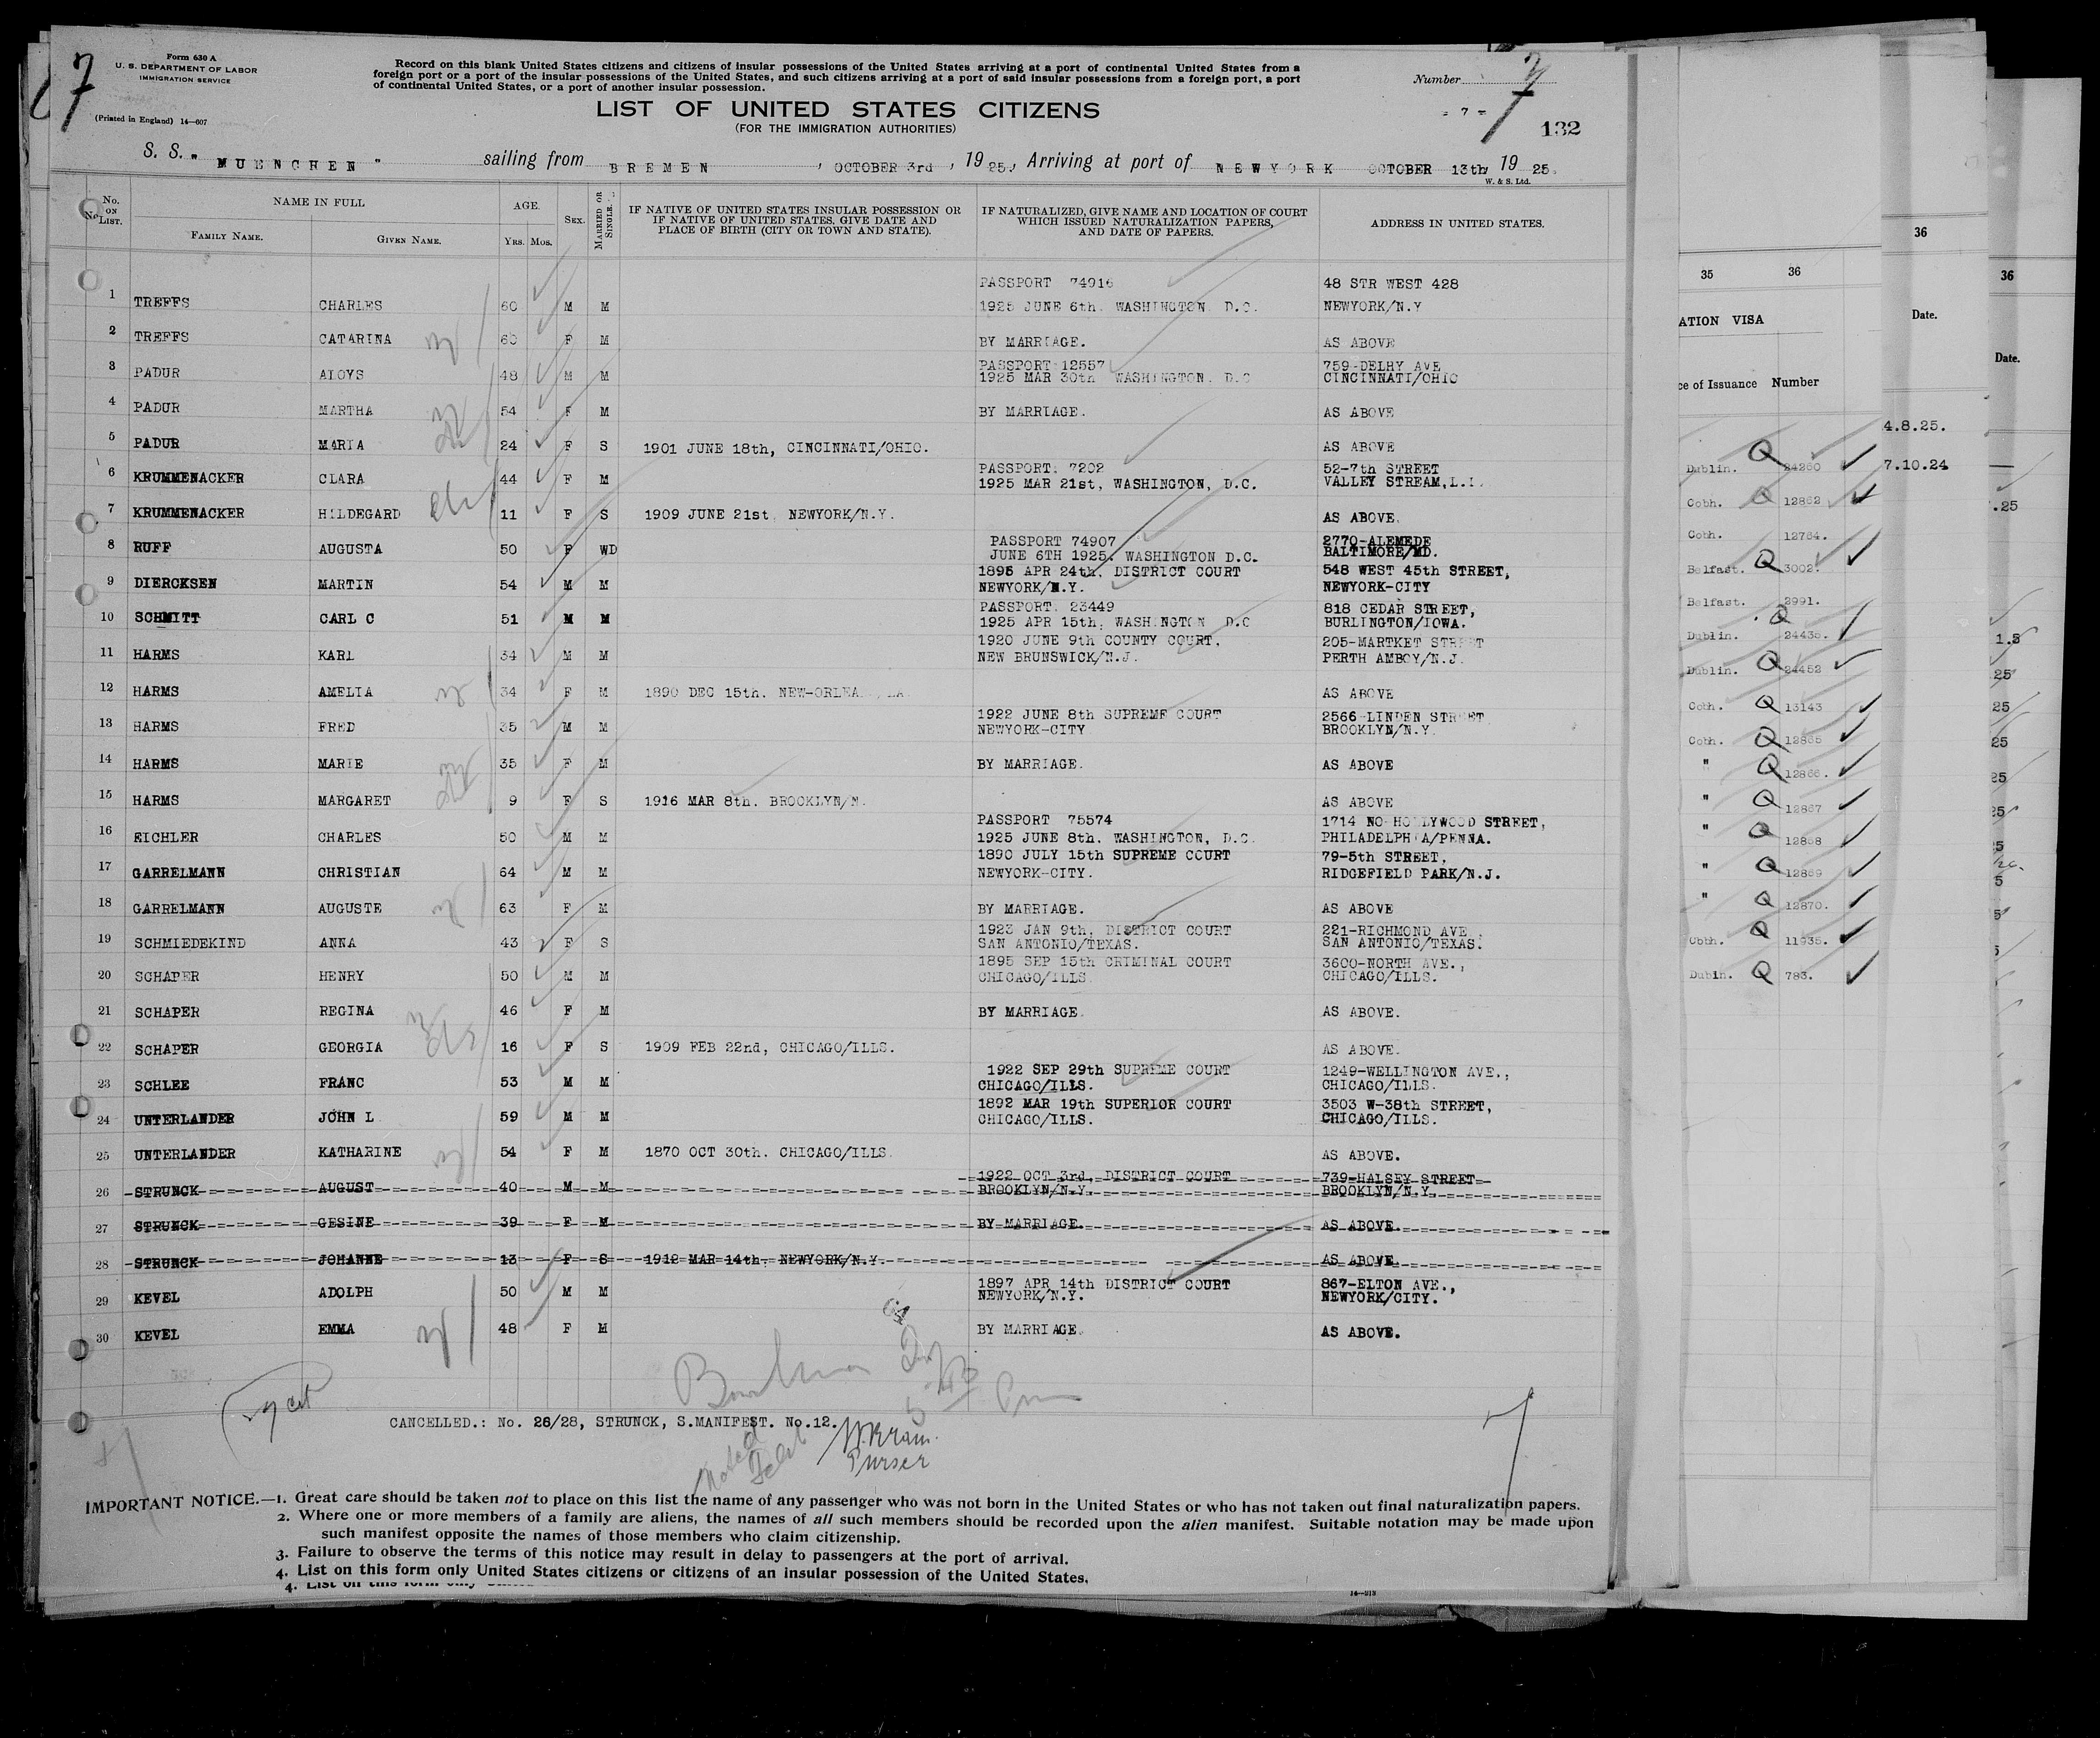 7
Form 630 A
U. S. DEPARTMENT OF LABOR
IMMIGRATION SERVICE
(Printed in England) 14—607
Record on this blank United States citizens and citizens of insular possessions of the United States arriving at a port of continental United States from a
foreign port or a port of the insular possessions of the United States, and such citizens arriving at a port of said insular possessions from a foreign port, a port
of continental United States, or a port of another insular possession.
Number 7
- 7 -
132
LIST OF UNITED STATES CITIZENS
(FOR THE IMMIGRATION AUTHORITIES)
S. S. " MUENCHEN " sailing from BREMEN, OCTOBER 3rd, 19 25., Arriving at port of NEWYORK OCTOBER 13th, 19 25.
W. & S. Ltd.
No. ON LIST. NAME IN FULL AGE. SEX. MARRIED OR SINGLE. IF NATIVE OF UNITED STATES INSULAR POSSESSION OR IF NATIVE OF UNITED STATES, GIVE DATE AND PLACE OF BIRTH (CITY OR TOWN AND STATE). IF NATURALIZED, GIVE NAME AND LOCATION OF COURT WHICH ISSUED NATURALIZATION PAPERS, AND DATE OF PAPERS. ADDRESS IN UNITED STATES.
FAMILY NAME. GIVEN NAME. YRS. MOS.
PASSPORT 74916 48 STR WEST 428
1 TREFFS CHARLES 60 M M 1925 JUNE 6th. WASHINGTON D.C. NEWYORK/N.Y
2 TREFFS CATARINA 60 F M BY MARRIAGE. AS ABOVE
PASSPORT 12557 759-DELHY AVE
3 PADUR ALOYS 48 M M 1925 MAR 30th WASHINGTON. D.C CINCINNATI/OHIO
4 PADUR MARTHA 54 F M BY MARRIAGE. AS ABOVE
5 PADUR MARIA 24 F S 1901 JUNE 18th, CINCINNATI/OHIO. AS ABOVE
PASSPORT. 7202 52-7th STREET
6 KRUMMENACKER CLARA 44 F M 1925 MAR 21st, WASHINGTON, D.C. VALLEY STREAM,L.I.
7 KRUMMENACKER HILDEGARD 11 F S 1909 JUNE 21st. NEWYORK/N.Y. AS ABOVE.
PASSPORT 74907 2770-ALEMEDE
8 RUFF AUGUSTA 50 F WD JUNE 6TH 1925. WASHINGTON D.C. BALTIMORE/MD.
1895 APR 24th, DISTRICT COURT 548 WEST 45th STREET,
9 DIERCKSEN MARTIN 54 M M NEWYORK/N.Y. NEWYORK-CITY
PASSPORT. 23449 818 CEDAR STREET,
10 SCHMITT CARL C 51 M M 1925 APR 15th, WASHINGTON D.C BURLINGTON/IOWA.
1920 JUNE 9th COUNTY COURT, 205-MARTKET STREET
11 HARMS KARL 34 M M NEW BRUNSWICK/N.J. PERTH AMBOY/N.J.
12 HARMS AMELIA 34 F M 1890 DEC 15th. NEW-ORLEA , LA. AS ABOVE
1922 JUNE 8th SUPREME COURT 2566-LINDEN STREET
13 HARMS FRED 35 M M NEWYORK-CITY BROOKLYN/N.Y.
14 HARMS MARIE 35 F M BY MARRIAGE. AS ABOVE
15 HARMS MARGARET 9 F S 1916 MAR 8th. BROOKLYN/N. AS ABOVE
PASSPORT 75574 1714 NO-HOLLYWOOD STREET,
16 EICHLER CHARLES 50 M M 1925 JUNE 8th. WASHINGTON, D.C. PHILADELPHIA/PENNA.
1890 JULY 15th SUPREME COURT 79-5th STREET,
17 GARRELMANN CHRISTIAN 64 M M NEWYORK-CITY. RIDGEFIELD PARK/N.J.
18 GARRELMANN AUGUSTE 63 F M BY MARRIAGE. AS ABOVE
1923 JAN 9th, DISTRICT COURT 221-RICHMOND AVE.
19 SCHMIEDEKIND ANNA 43 F S SAN ANTONIO/TEXAS. SAN ANTONIO/TEXAS.
1895 SEP 15th CRIMINAL COURT 3600-NORTH AVE.,
20 SCHAPER HENRY 50 M M CHICAGO/ILLS CHICAGO/ILLS.
21 SCHAPER REGINA 46 F M BY MARRIAGE. AS ABOVE.
22 SCHAPER GEORGIA 16 F S 1909 FEB 22nd, CHICAGO/ILLS. AS ABOVE.
1922 SEP 29th SUPREME COURT 1249-WELLINGTON AVE.,
23 SCHLEE FRANC 53 M M CHICAGO/ILLS. CHICAGO/ILLS.
1892 MAR 19th SUPERIOR COURT 3503 W-38th STREET,
24 UNTERLANDER JOHN L 59 M M CHICAGO/ILLS. CHICAGO/ILLS.
25 UNTERLANDER KATHARINE 54 F M 1870 OCT 30th. CHICAGO/ILLS. AS ABOVE.
1922 OCT 3rd, DISTRICT COURT 739-HALSEY STREET
26 STRUNCK AUGUST 40 M M BROOKLYN/N.Y. BROOKLYN/N.Y.
27 STRUNCK GESINE 39 F M BY MARRIAGE. AS ABOVE.
28 STRUNCK JOHANNE 13 F S 1912 MAR 14th. NEWYORK/N.Y. AS ABOVE.
1897 APR 14th DISTRICT COURT 867-ELTON AVE.,
29 KEVEL ADOLPH 50 M M NEWYORK/N.Y. NEWYORK/CITY.
30 KEVEL EMMA 48 F M BY MARRIAGE. AS ABOVE.
CANCELLED.: No. 26/28, STRUNCK, S.MANIFEST. No.12.
Purser
IMPORTANT NOTICE.—1. Great care should be taken not to place on this list the name of any passenger who was not born in the United States or who has not taken out final naturalization papers.
2. Where one or more members of a family are aliens, the names of all such members should be recorded upon the alien manifest. Suitable notation may be made upon
such manifest opposite the names of those members who claim citizenship.
3. Failure to observe the terms of this notice may result in delay to passengers at the port of arrival.
4. List on this form only United States citizens or citizens of an insular possession of the United States.
35 36
ATION VISA
ce of Issuance Number
Dublin. Q 24260
Cobh. Q 12862
Cobh. 12764.
Belfast. Q 3002.
Belfast. 2991.
Dublin. Q 24435.
Dublin. Q 24452
Cobh. Q 13143
Cobh. Q 12865
" Q 12866.
" Q 12867
" Q 12868
" Q 12869
" Q 12870.
Cobh. Q 11935.
Dubin. Q 783.
36
Date.
4.8.25.
7.10.24
36
Date.
.25
14—913